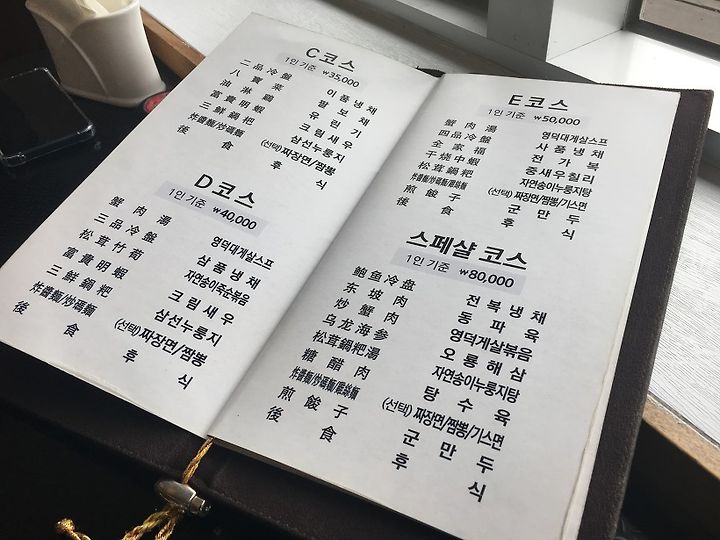 C코스
1인 기준 ₩35,000
二品冷盤 이품냉채
八寶菜 팔보채
油淋鷄 유린기
富貴明蝦 크림새우
三鮮鍋粑 삼선누룽지
炸醬麵/炒碼麵 (선택)짜장면/짬뽕
後食 후식
D코스
1인 기준 ₩40,000
蟹肉湯 영덕대게살스프
三品冷盤 삼품냉채
松茸竹荀 자연송이죽순볶음
富貴明蝦 크림새우
三鮮鍋粑 삼선누룽지
炸醬麵/炒碼麵 (선택)짜장면/짬뽕
後食 후식
E코스
1인 기준 ₩50,000
蟹肉湯 영덕대게살스프
四品冷盤 사품냉채
全家福 전가복
干烧中蝦 중새우칠리
松茸鍋粑 자연송이누룽지탕
炸醬麵/炒碼麵/鷄絲麵 (선택)짜장면/짬뽕/기스면
煎餃子 군만두
後食 후식
스페샬 코스
1인 기준 ₩80,000
鮑鱼冷盘 전복냉채
东坡肉 동파육
炒蟹肉 영덕게살볶음
乌龙海参 오룡해삼
松茸鍋粑湯 자연송이누룽지탕
糖醋肉 탕수육
炸醬麵/炒碼麵/鷄絲麵 (선택)짜장면/짬뽕/기스면
煎餃子 군만두
後食 후식